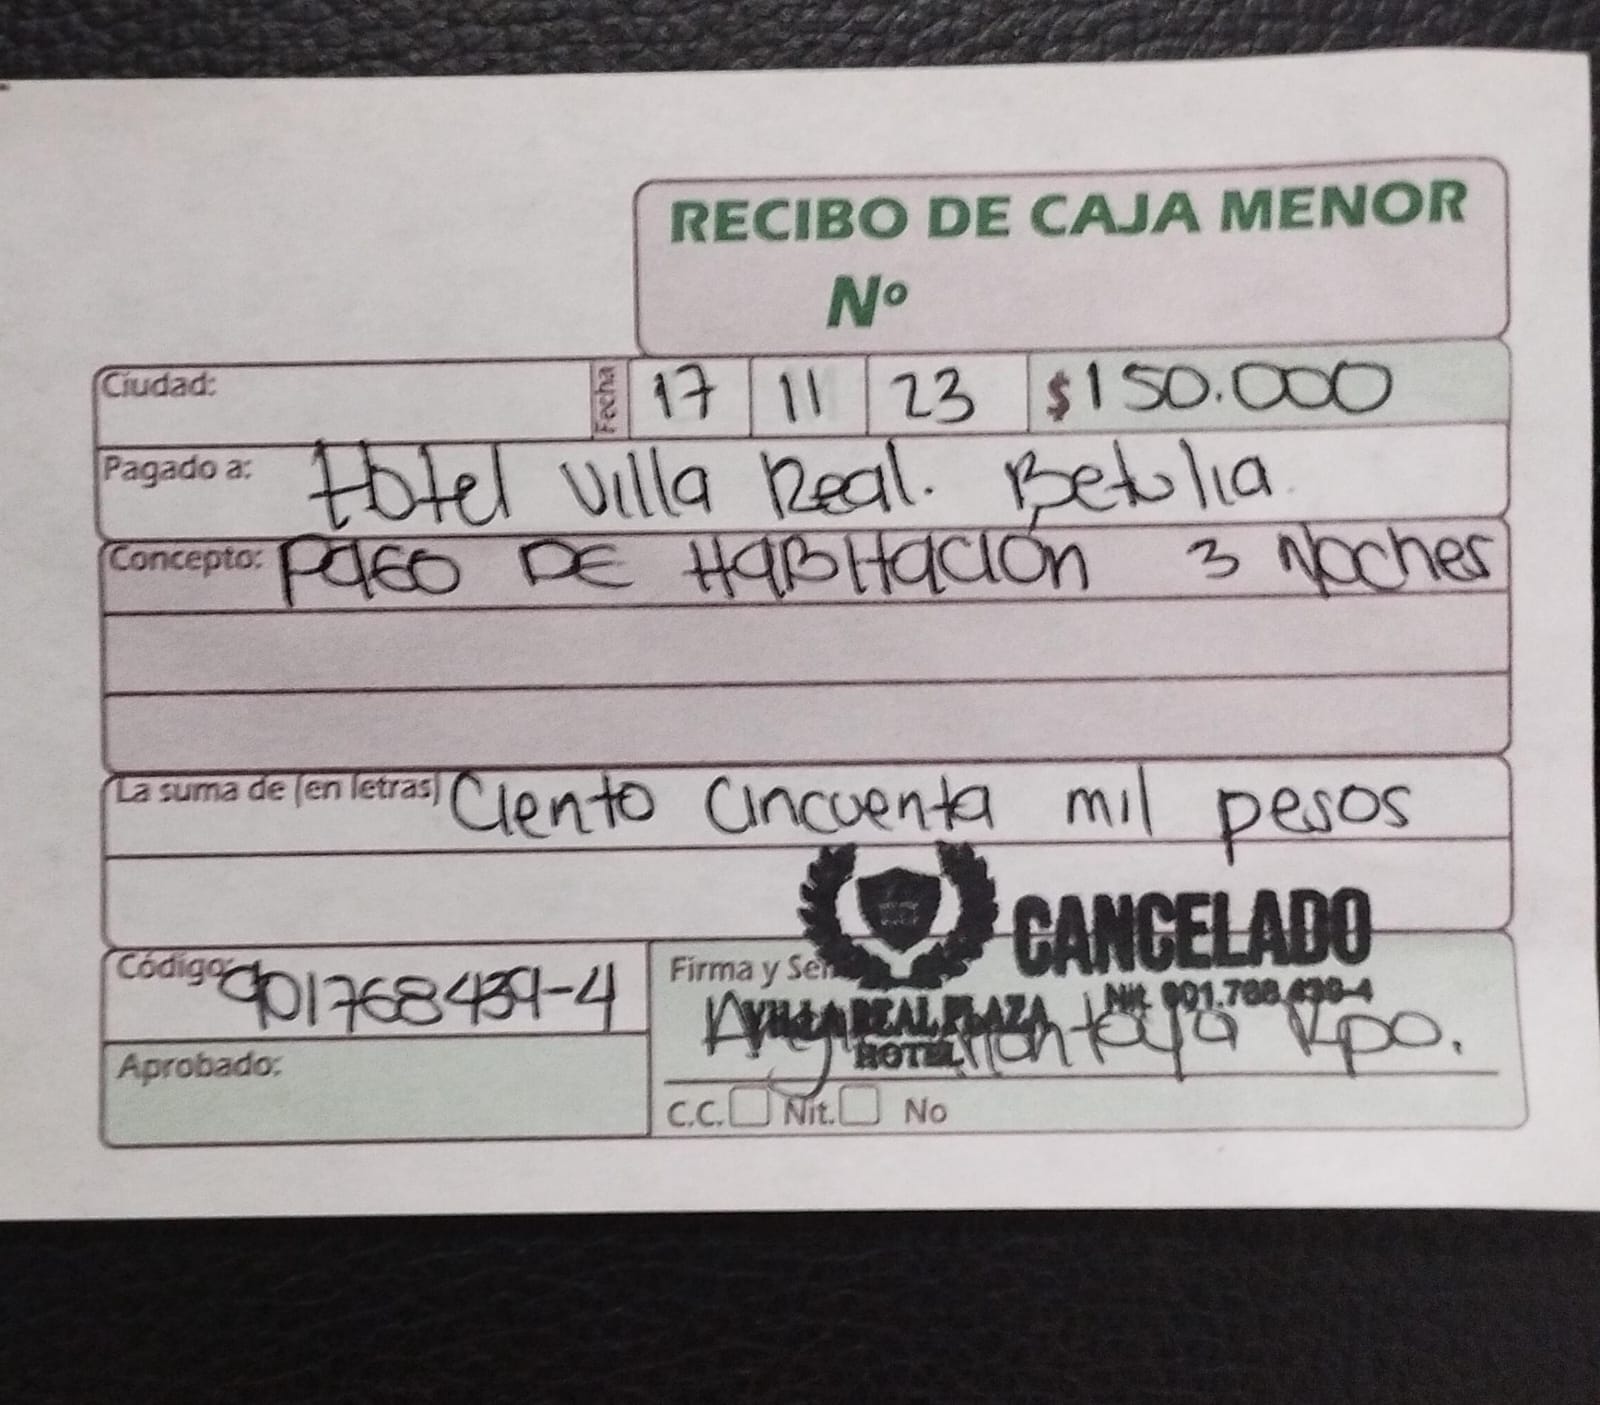 RECIBO DE CAJA MENOR
Nº
Ciudad: Fecha 17 11 23 $150.000
Pagado a: Hotel Villa Real. Betulia
Concepto: Pago DE HaBitación 3 Noches
La suma de (en letras) Ciento Cincuenta mil pesos
CANCELADO
Código: 901768439-4 Firma y Sel
Nit. 901.768.439-4
VILLA REAL PLAZA
HOTEL
Montoya Rpo.
Aprobado:
C.C. Nit. No